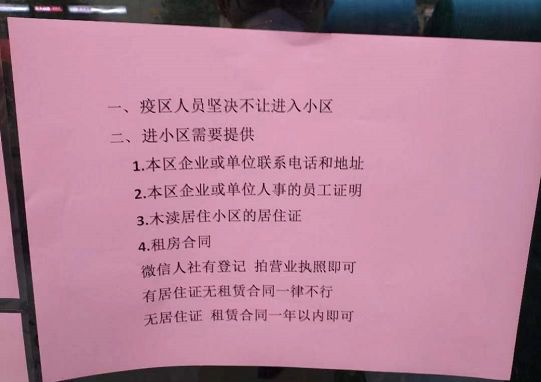 一、疫区人员坚决不让进入小区
二、进小区需要提供
1.本区企业或单位联系电话和地址
2.本区企业或单位人事的员工证明
3.木渎居住小区的居住证
4.租房合同
微信人社有登记 拍营业执照即可
有居住证无租赁合同一律不行
无居住证 租赁合同一年以内即可